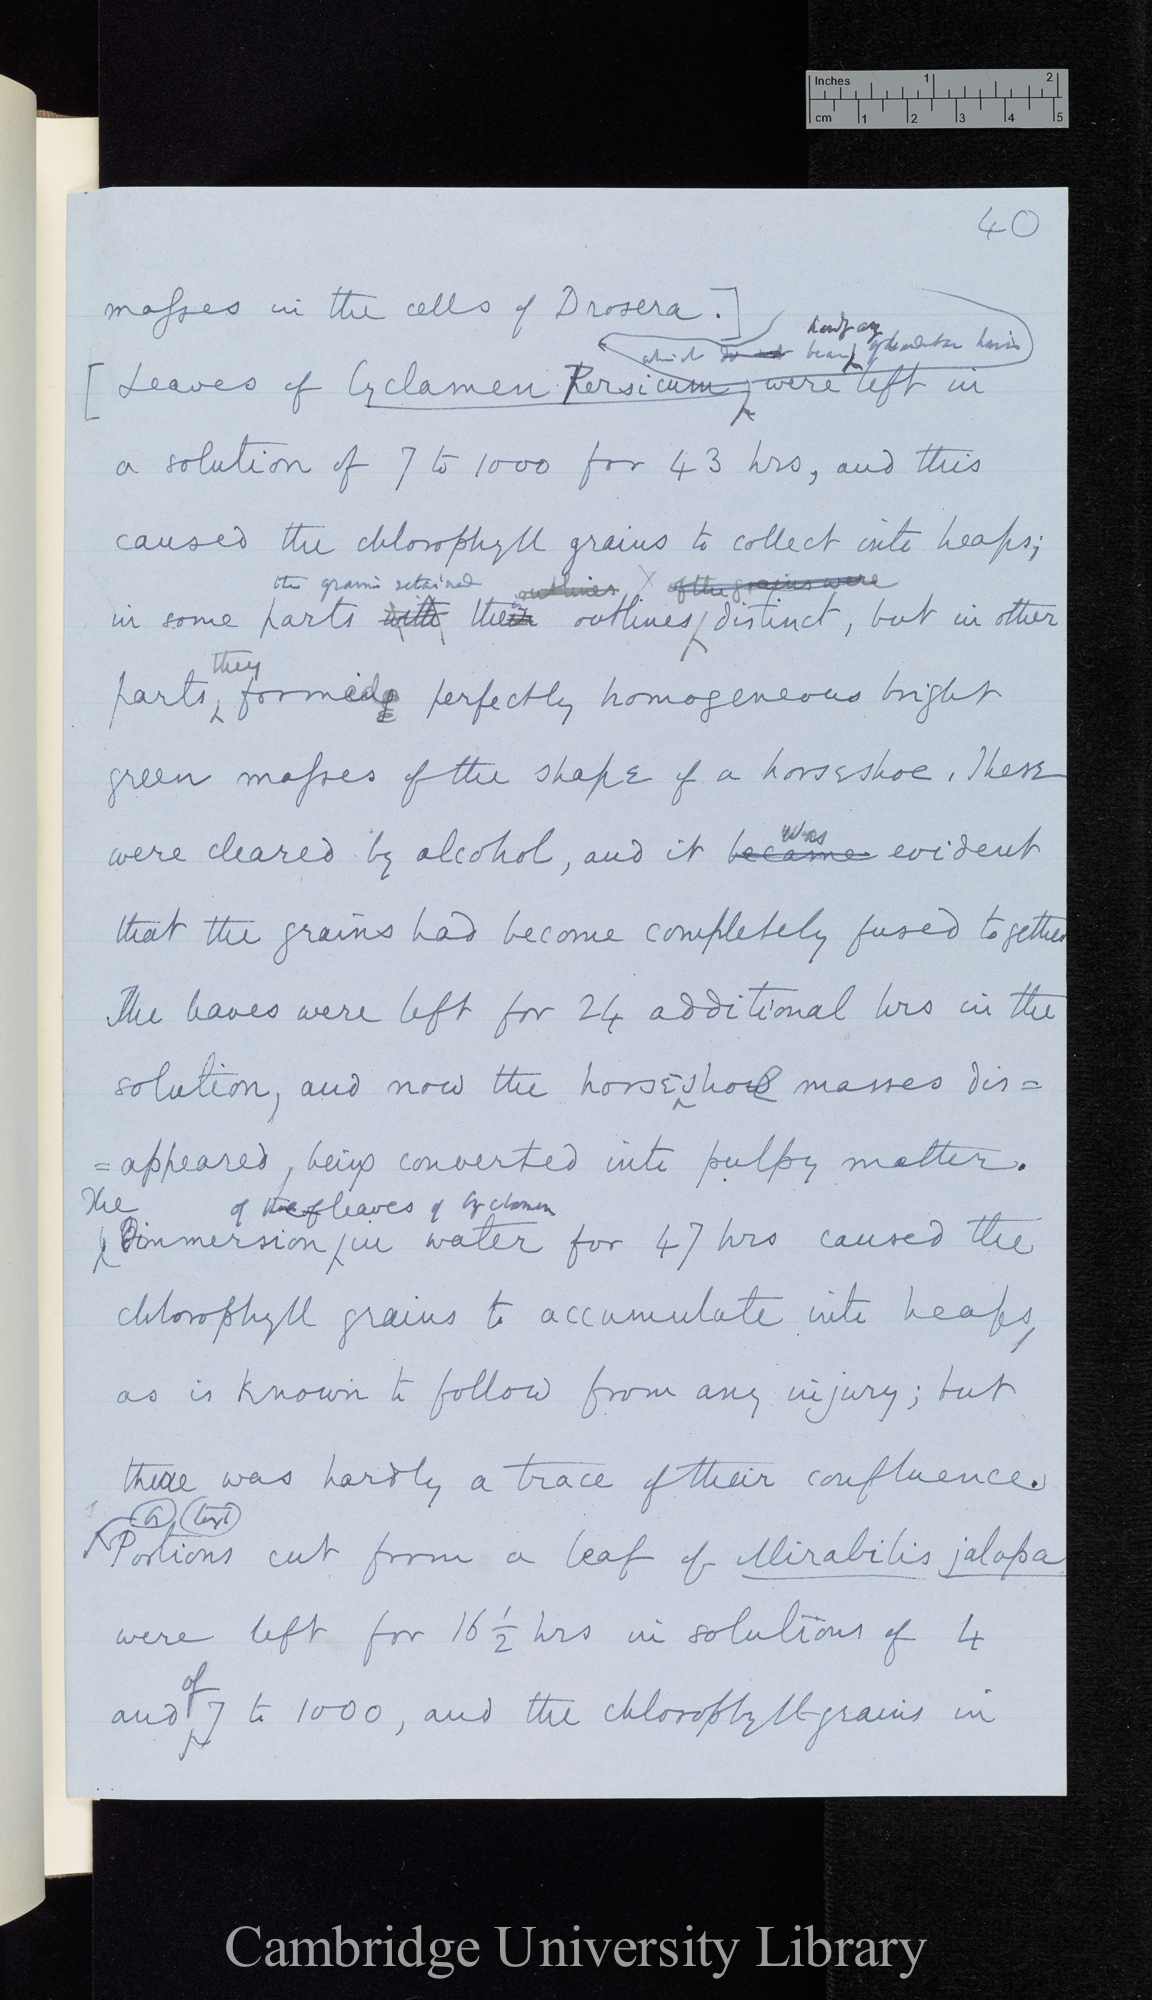 Inches 1 2
cm 1 2 3 4 5
40
masses in the cells of Drosera.]
hardly any
which do not bear glandular hairs
[Leaves of Cyclamen Persicum, were left in
a solution of 7 to 1000 for 43 hrs, and this
caused the chlorophyll grains to collect into heaps;
the grains retained outlines of the grains were
in some parts with their outlines distinct, but in other
they
parts, formed perfectly homogeneous bright
green masses of the shape of a horseshoe. These
was
were cleared by alcohol, and it became evident
that the grains had become completely fused together
The leaves were left for 24 additional hrs in the
solution, and now the horse shoe masses dis=
=appeared, being converted into pulpy matter.
The of the of leaves of Cyclamen
immersion in water for 47 hrs caused the
chlorophyll grains to accumulate into heaps,
as is known to follow from any injury; but
there was hardly a trace of their confluence.
(a) (text)
Portions cut from a leaf of Mirabilis jalapa
were left for 16 1/2 hrs in solutions of 4
of
and 7 to 1000, and the chlorophyll-grains in
Cambridge University Library